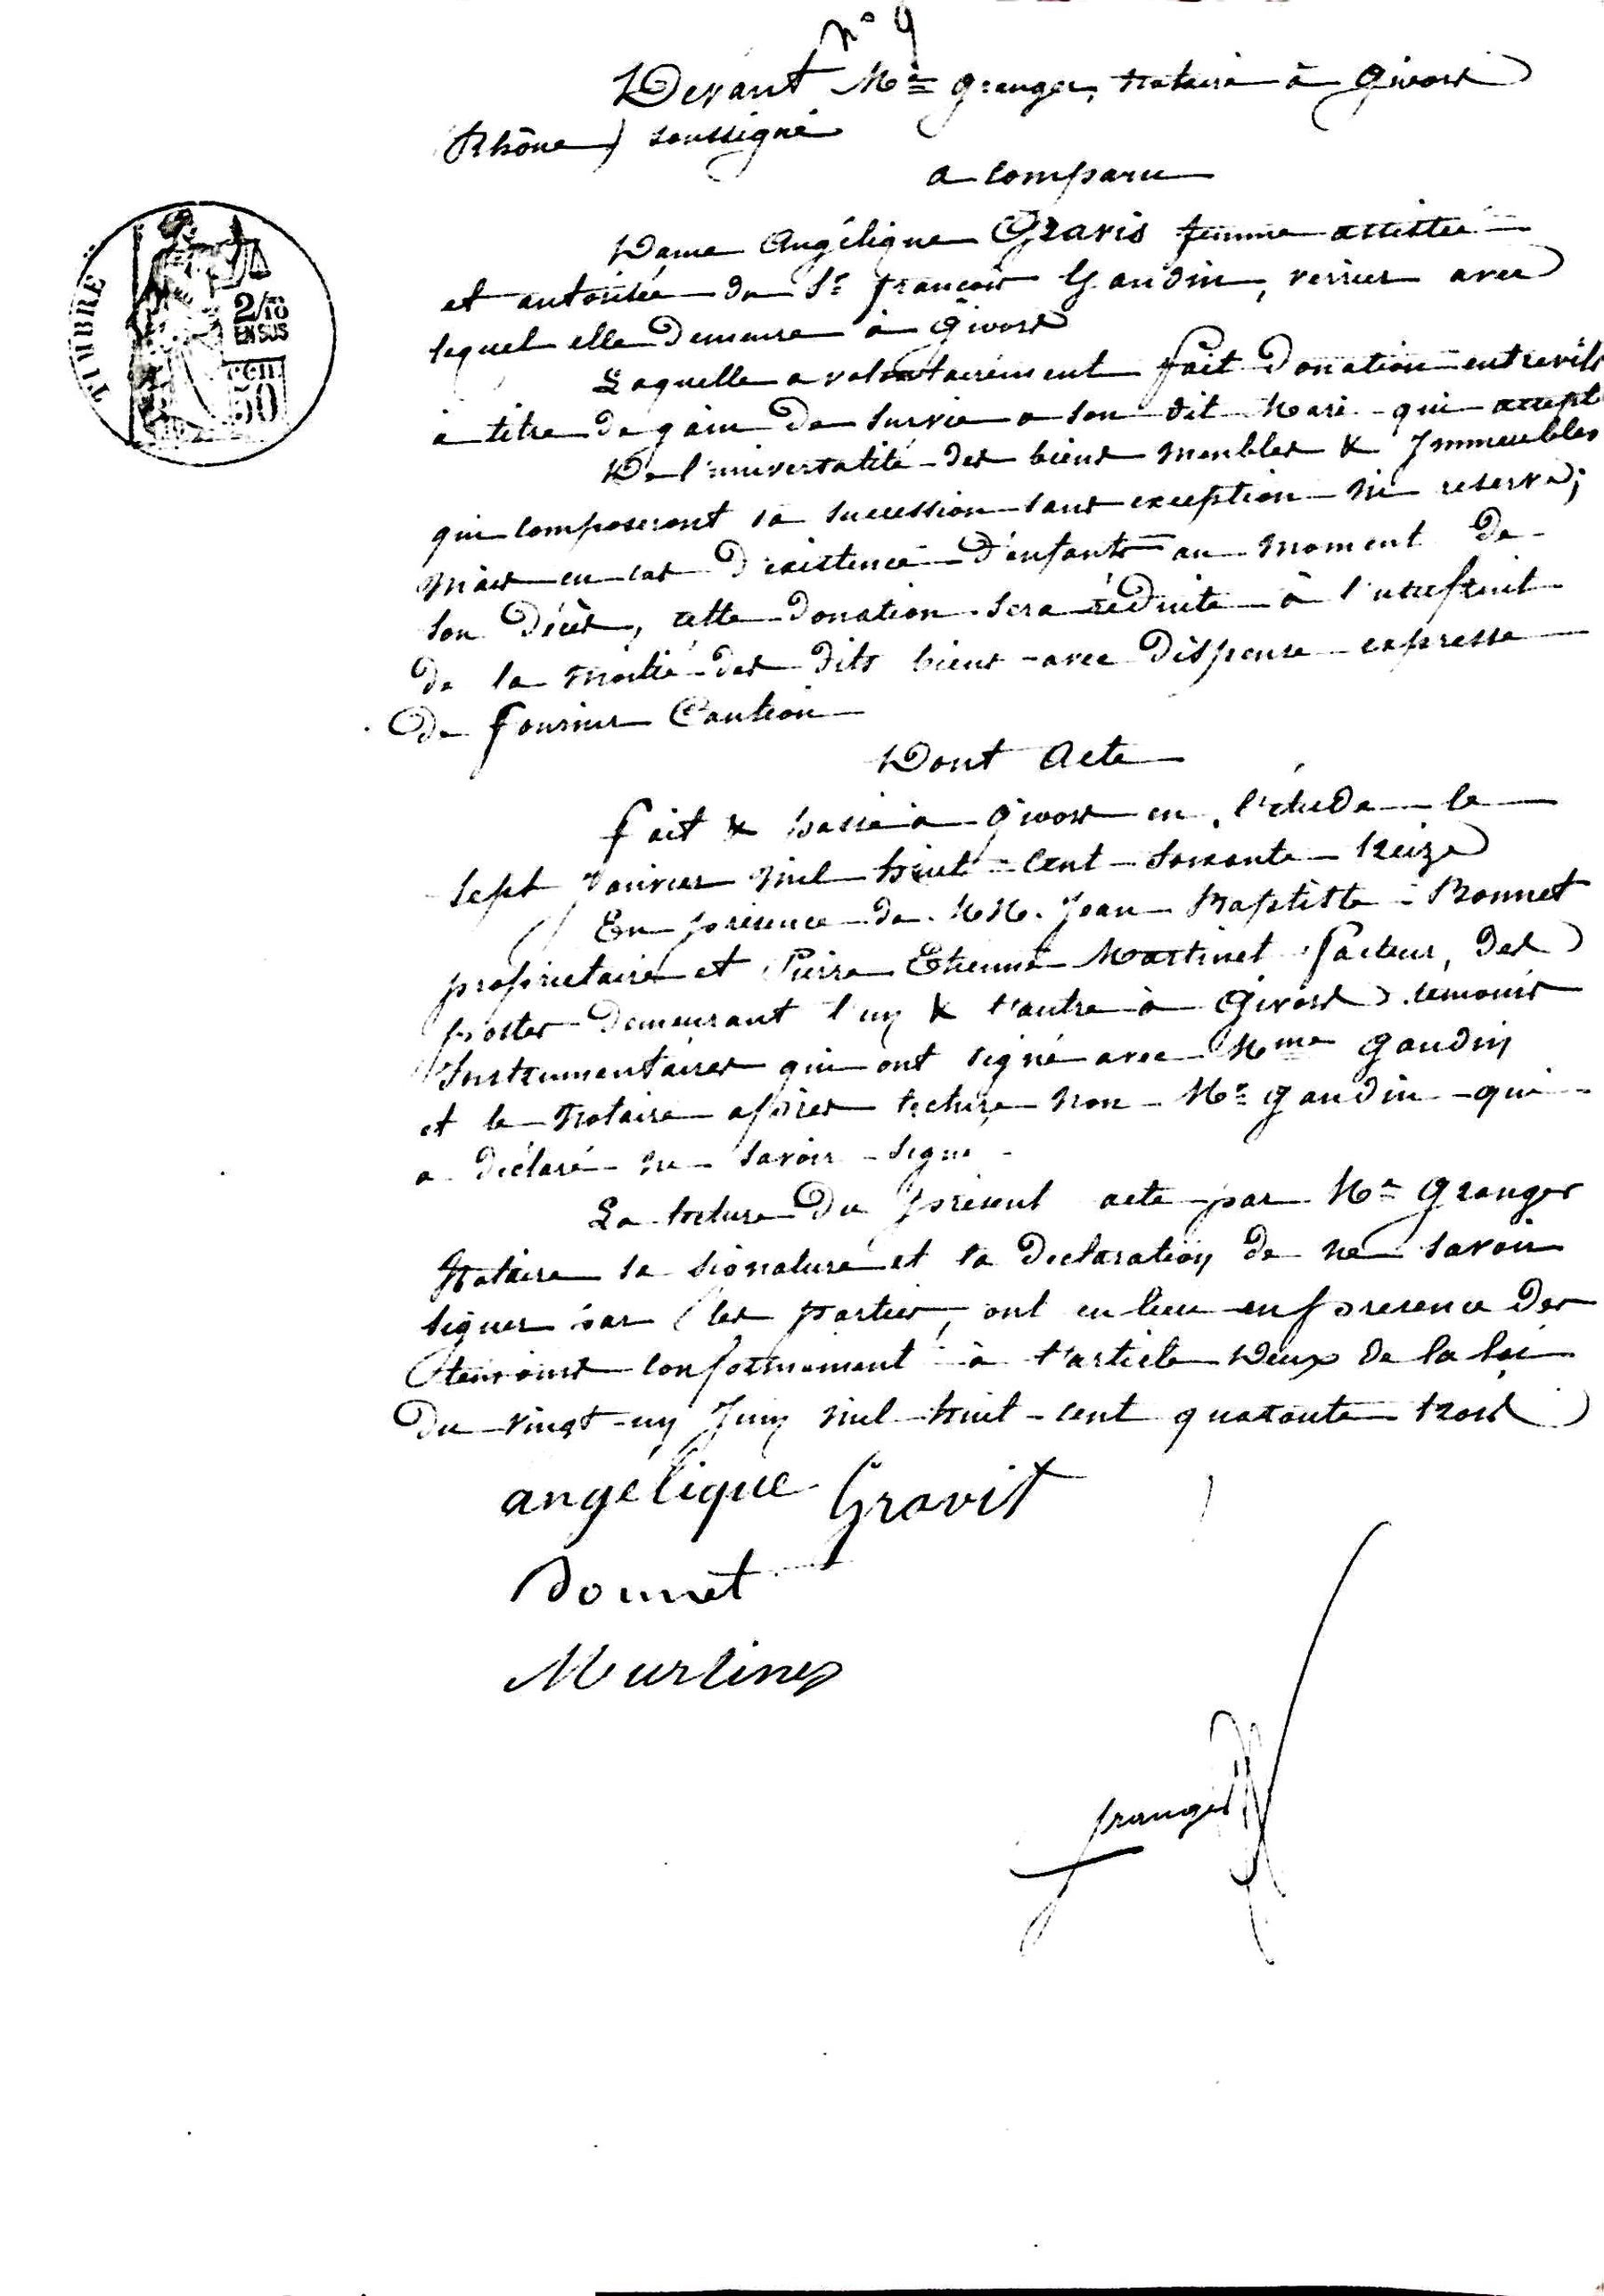 n° 9
Devant Me Granger, notaire à Givors
Rhône) soussigné
a comparu
TIMBRE
2/10
EN SUS
50
Dame Angélique Gravis femme assistée
et autorisée de Sr François Gaudin, verrier avec
lequel elle demeure à Givors
Laquelle a volontairement fait donation entrevifs
à titre de gain de survie a son dit mari qui accepte
De l'universalité des biens meubles & Immeubles
qui composeront sa succession sans exception ni reserve;
mais en cas d'existence d'enfants au moment de
son décès, cette donation sera réduite à l'usufruit
de la moitié des dits biens avec dispense expresse
de fournir Caution
Dont Acte
fait & passé à Givors en l'étude le
sept Janvier mil huit cent soixante treize
En présence de MM. Jean Baptiste Bonnet
propriétaire et Pierre Etienne Martinet facteur des
postes demeurant l'un & l'autre à Givors témoins
Instrumentaires qui ont signé avec Mme Gaudin
et le notaire après lecture non Mr Gaudin qui
a déclaré ne savoir signé
La lecture du présent acte par Me Granger
Notaire la signature et la déclaration de ne savoir
signer par les parties, ont eu lieu en présence des
témoins conformément à l'article Deux de la loi
du vingt-un Juin mil huit-cent quarante trois
angélique Gravit
Bonnet
Martinet
Granger